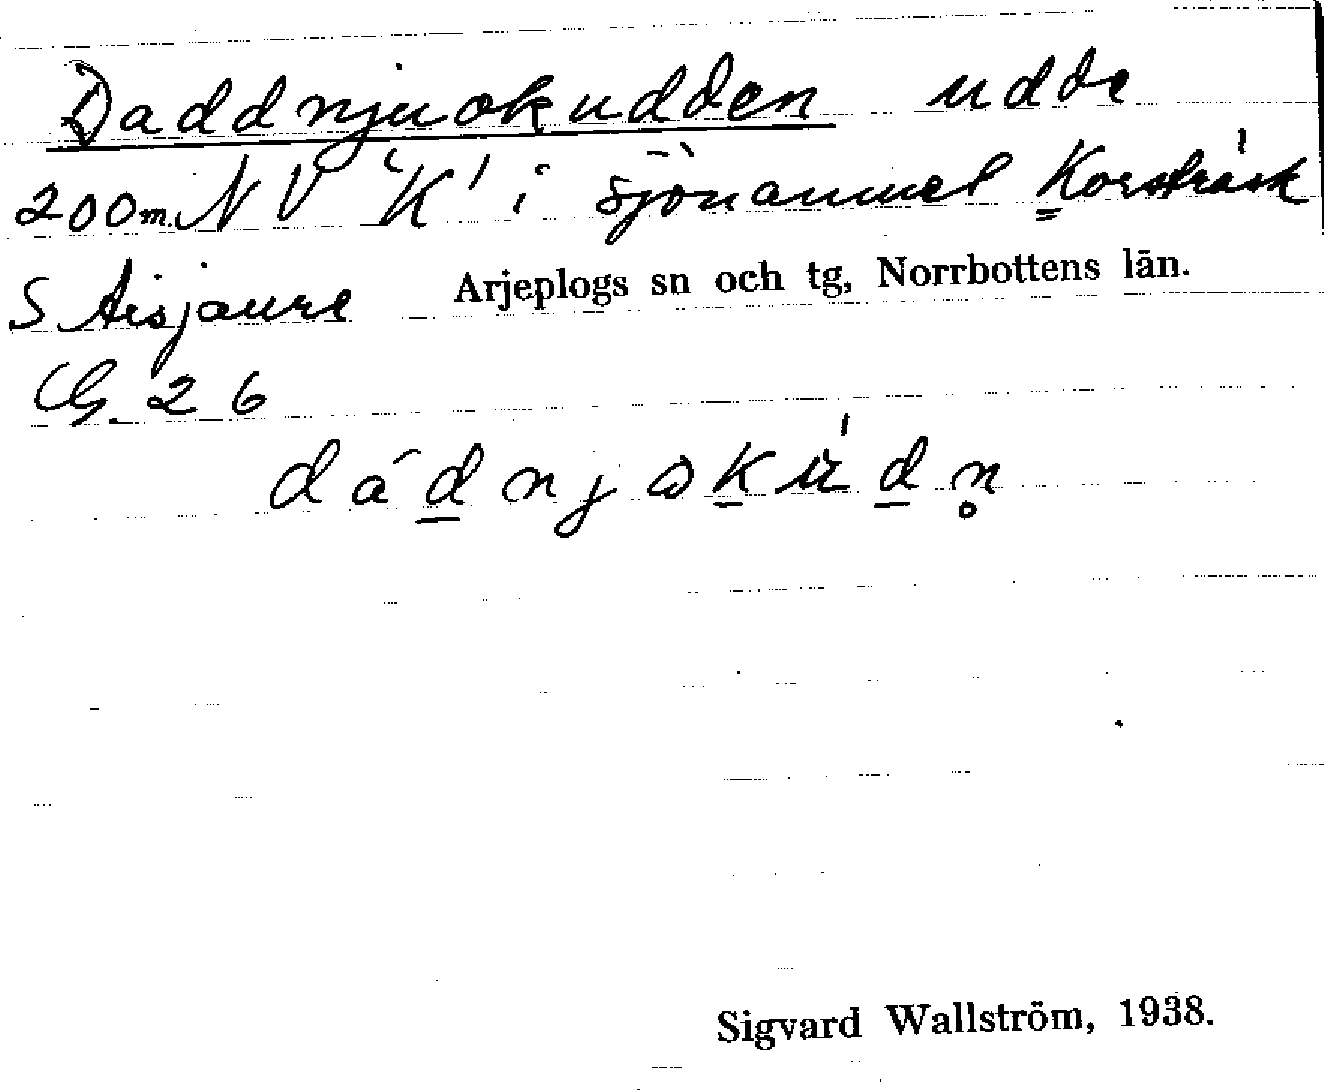 Daddnjuokudden udde
200 m. NV 'K' i sjönamnet Korsträsk
S Aisjaure Arjeplogs sn och tg, Norrbottens län.
G. 26
dádnjɷkúdn̥
Sigvard Wallström, 1938.